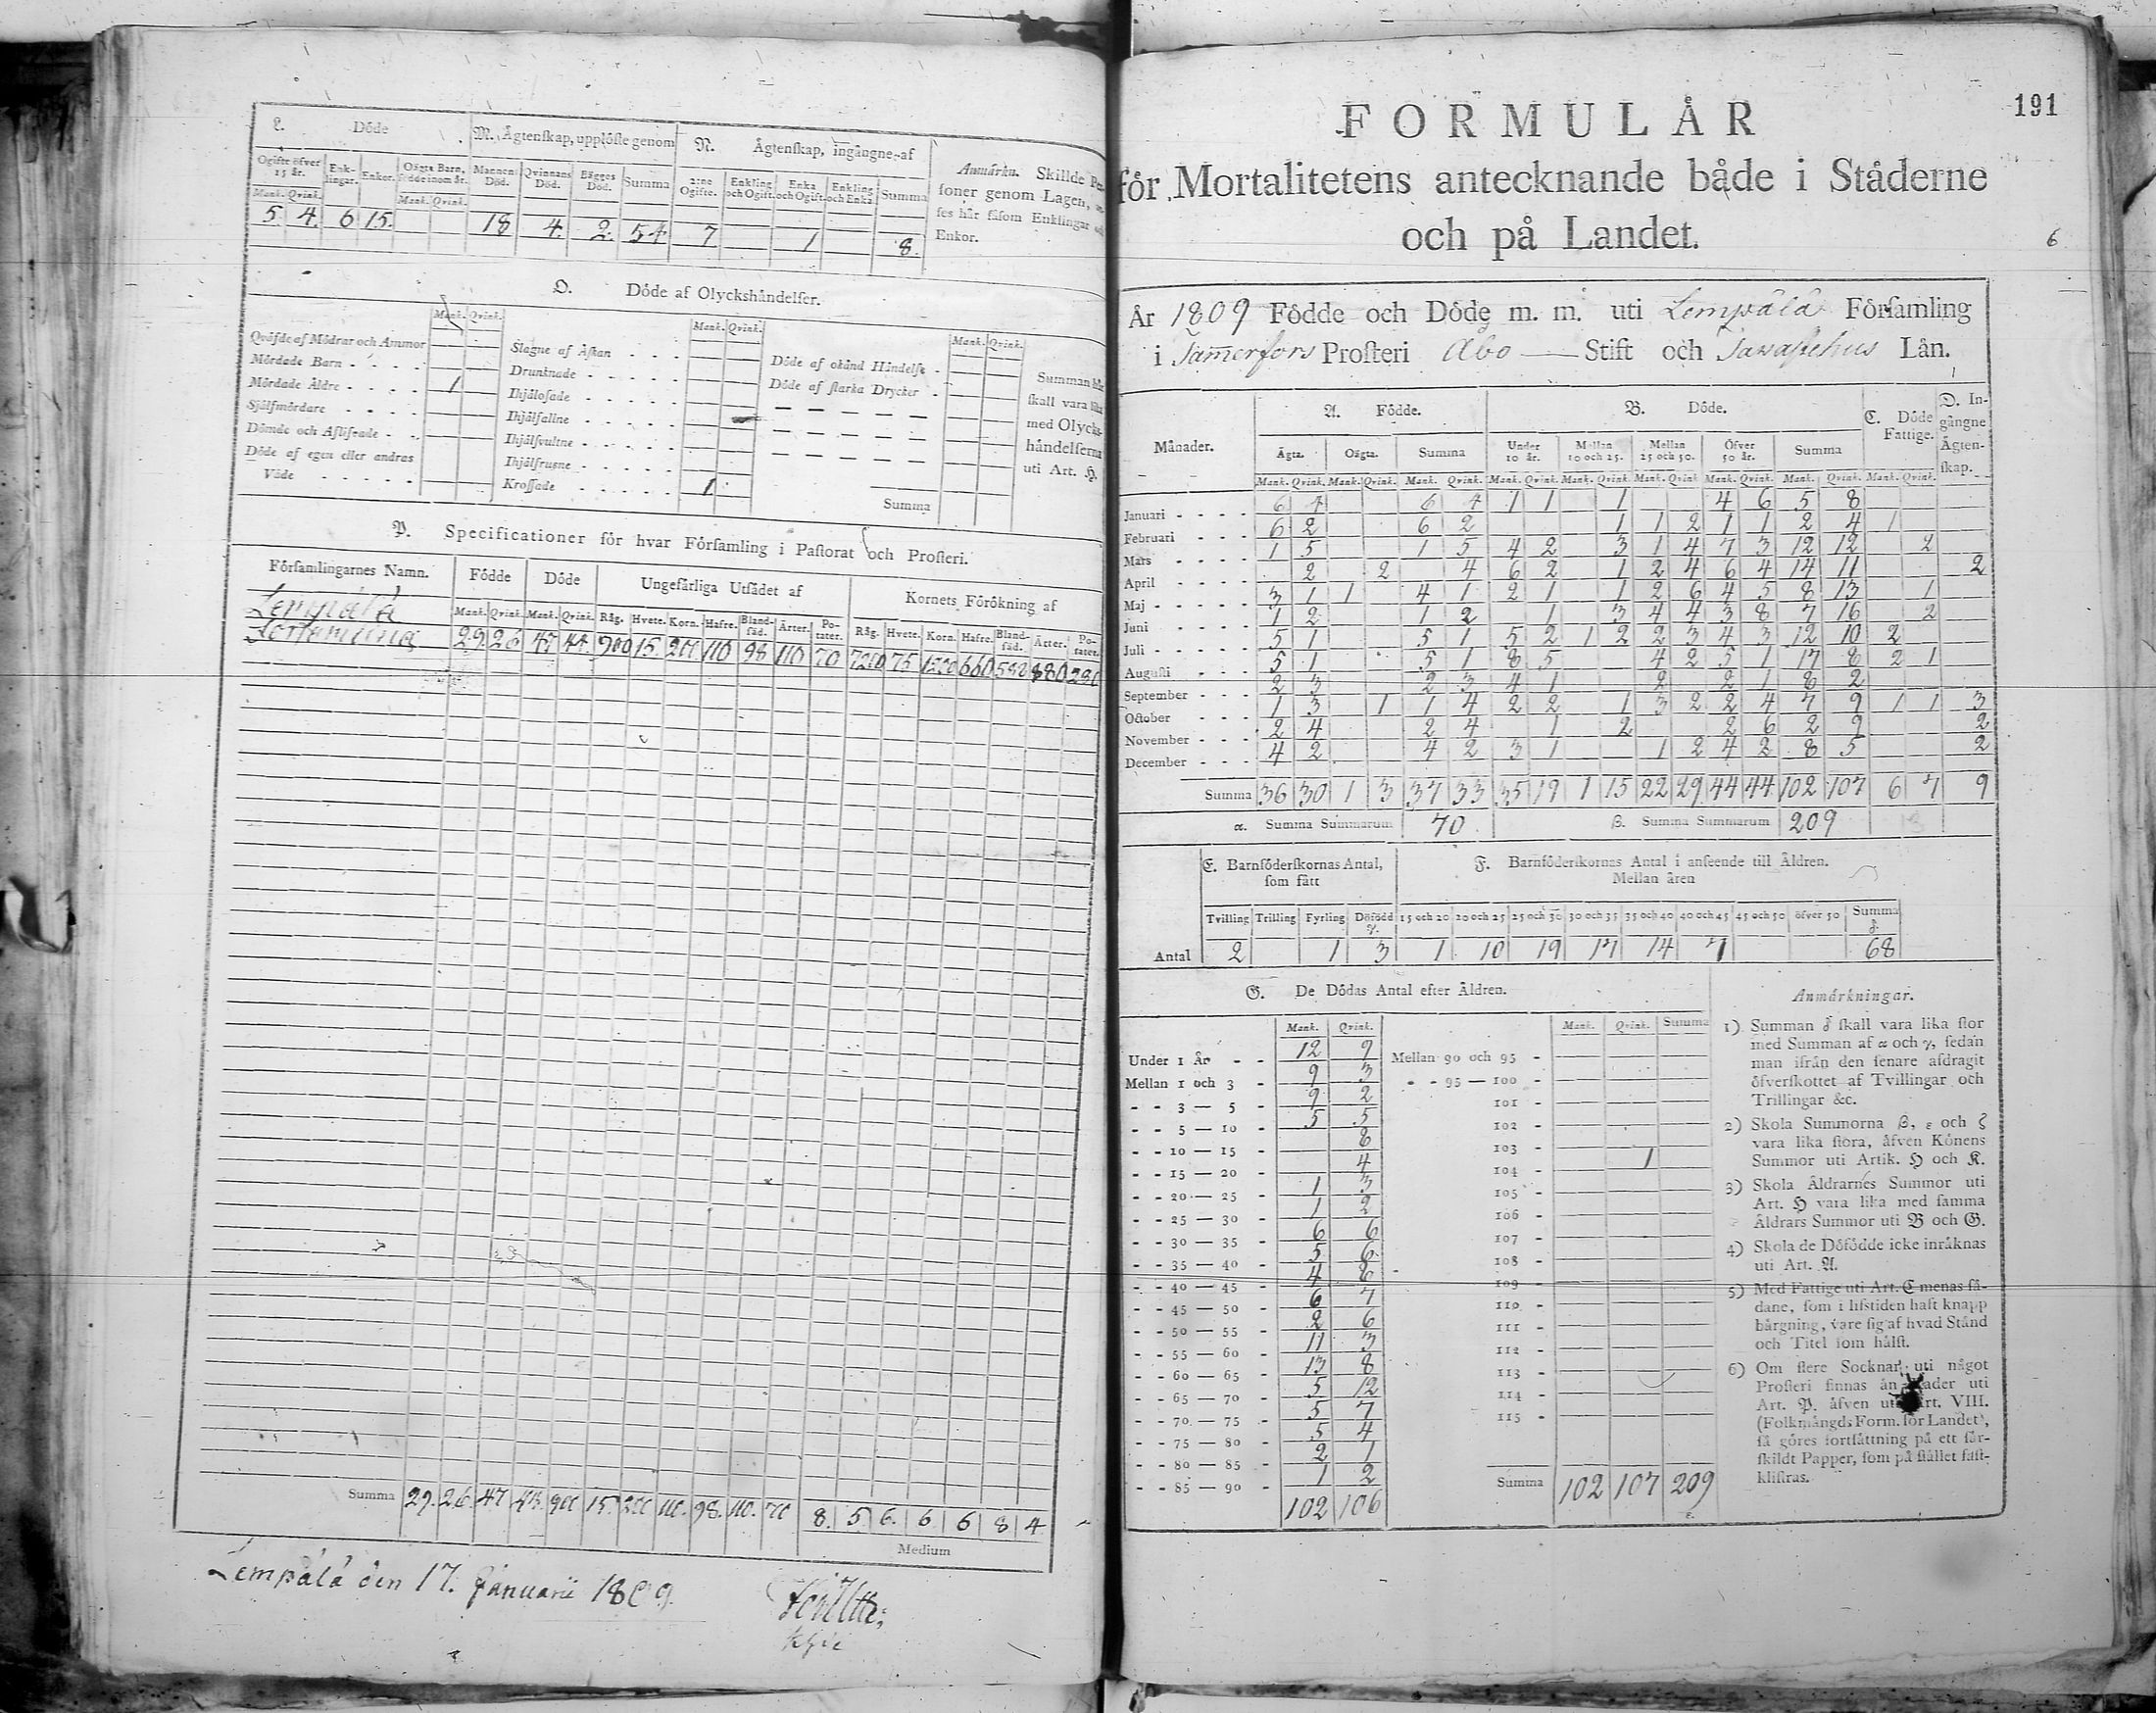 L. Döde
M. Ägtenskap, upplöste genom
N. Ägtenskap, ingångne af
Anmärkn. Skillde
soner genom Lagen,
ses här såsom Enklingar
Enkor.
Ogifte öfver 15 år. Enklingar. Enkor. Oägta Barn, födde inom år. Mannens Död. Qvinnans Död. Bägges Död. Summa 2:ne Ogifte. Enkling och Ogift. Enka och Ogift. Enkling och Enka. Summa
Mank. Qvink. Mank. Qvink.
5. 4. 6 15. 18 4. 2. 54 7 1 8.
O. Döde af Olyckshändelser.
Mank. Qvink. Mank. Qvink. Mank. Qvink.
Qväfde af Mödrar och Ammor
Mördade Barn
Mördade Äldre 1
Självmördare
Dömde och Aflifvade
Döde af egen eller andras
Våde
Slagne af Åskan
Drunknade
Ihjälosade
Ihjälfallne
Ihjälsvultne
Ihjälfrusne
Krossade 1
Döde af okänd Händelse
Döde af starka Drycker
Summa
Summan
skall vara
med Olycks-
händelserna
uti Art. H.
P. Specificationer för hvar Församling i Pastorat och Prosteri.
Församlingarnes Namn. Födde Döde Ungefärliga Utsädet af Kornets Förökning af
Mank. Qvink. Mank. Qvink. Råg. Hvete. Korn. Hafre. Blandsäd. Ärter. Potater. Råg. Hvete. Korn. Hafre. Blandsäd. Ärter. Potater.
Lempälä
Församling 29. 26 47 44. 900 15. 200 110 98 110 70 7200 75 1200 660 588 880 280
Summa 29. 26. 47 44. 900 15. 200 110. 98. 110. 70 8. 5 6. 6 6 8 4
Medium
Lempälä den 17. Januarii 1809.
FORMULÄR
191
för Mortalitetens antecknande både i Städerne
och på Landet.
6
År 1809 Födde och Döde m. m. uti Lempälä Församling
i Tammerfors Prosteri Åbo Stift och Tavastehus Län.
Månader. A. Födde. B. Döde. C. Döde Fattige. D. Ingångne Ägtenskap.
Ägta. Oägta. Summa Under 10 år. Mellan 10 och 25. Mellan 25 och 50. Öfver 50 år. Summa
Mank. Qvink. Mank. Qvink. Mank. Qvink. Mank. Qvink. Mank. Qvink. Mank. Qvink. Mank. Qvink. Mank. Qvink. Mank. Qvink.
Januari 6 4 6 4 1 1 1 4 6 5 8
Februari 6 2 6 2 1 1 2 1 1 2 4 1
Mars 1 5 1 5 4 2 3 1 4 7 3 12 12 2
April 2 2 4 6 2 1 2 4 6 4 14 11 2
Maj 3 1 1 4 1 2 1 1 2 6 4 5 8 13 1
Juni 1 2 1 2 1 3 4 4 3 8 7 16 2
Juli 5 1 5 1 5 2 1 2 2 3 4 3 12 10 2
Augusti 5 1 5 1 8 5 4 2 5 1 17 8 2 1
September 2 3 2 3 4 1 2 2 1 8 2
October 1 3 1 1 4 2 2 1 3 2 2 4 7 9 1 1 3
November 2 4 2 4 1 2 2 6 2 9 2
December 4 2 4 2 3 1 1 2 4 2 8 5 2
Summa 36 30 1 3 37 33 35 19 1 15 22 29 44 44 102 107 6 7 9
α. Summa Summarum 70 β. Summa Summarum 209 13
E. Barnföderskornas Antal, som fått
F. Barnföderskornas Antal i anseende till Åldren.
Mellan åren
Tvilling Trilling Fyrling Dödfödd γ. 15 och 20 20 och 25 25 och 30 30 och 35 35 och 40 40 och 45 45 och 50 öfver 50 Summa δ.
Antal 2 1 3 1 10 19 17 14 7 68
G. De Dödas Antal efter Åldren.
Mank. Qvink. Mank. Qvink. Summa
Under 1 År 12 9 Mellan 90 och 95
Mellan 1 och 3 9 3 95 — 100
3 — 5 9 2 101
5 — 10 5 5 102
10 — 15 8 103
15 — 20 4 104 1
20 — 25 1 3 105
25 — 30 1 2 106
30 — 35 6 6 107
35 — 40 5 6 108
40 — 45 4 8 109
45 — 50 6 7 110
50 — 55 2 6 111
55 — 60 11 3 112
60 — 65 13 8 113
65 — 70 5 12 114
70 — 75 5 7 115
75 — 80 5 4
80 — 85 2 1
85 — 90 1 2
102 106 Summa 102 107 209
ε.
Anmärkningar.
1) Summan δ skall vara lika stor
med Summan af α och γ, sedan
man ifrån den senare afdragit
öfverskottet af Tvillingar och
Trillingar &c.
2) Skola Summorna β, ε och ζ
vara lika stora, äfven Könens
Summor uti Artik. H och K.
3) Skola Åldrarnes Summor uti
Art. H vara lika med samma
Åldrars Summor uti B och G.
4) Skola de Döfödde icke inräknas
uti Art. A.
5) Med Fattige uti Art. C menas så-
dane, som i lifstiden haft knapp
bärgning, vare sig af hvad Stånd
och Titel som hälst.
6) Om flere Socknar uti något
Prosteri finnas än Rader uti
Art. P. äfven uti Art. VIII.
(Folkmängds Form. för Landet),
så göres fortsättning på ett sär-
skildt Papper, som på stället fast-
klistras.